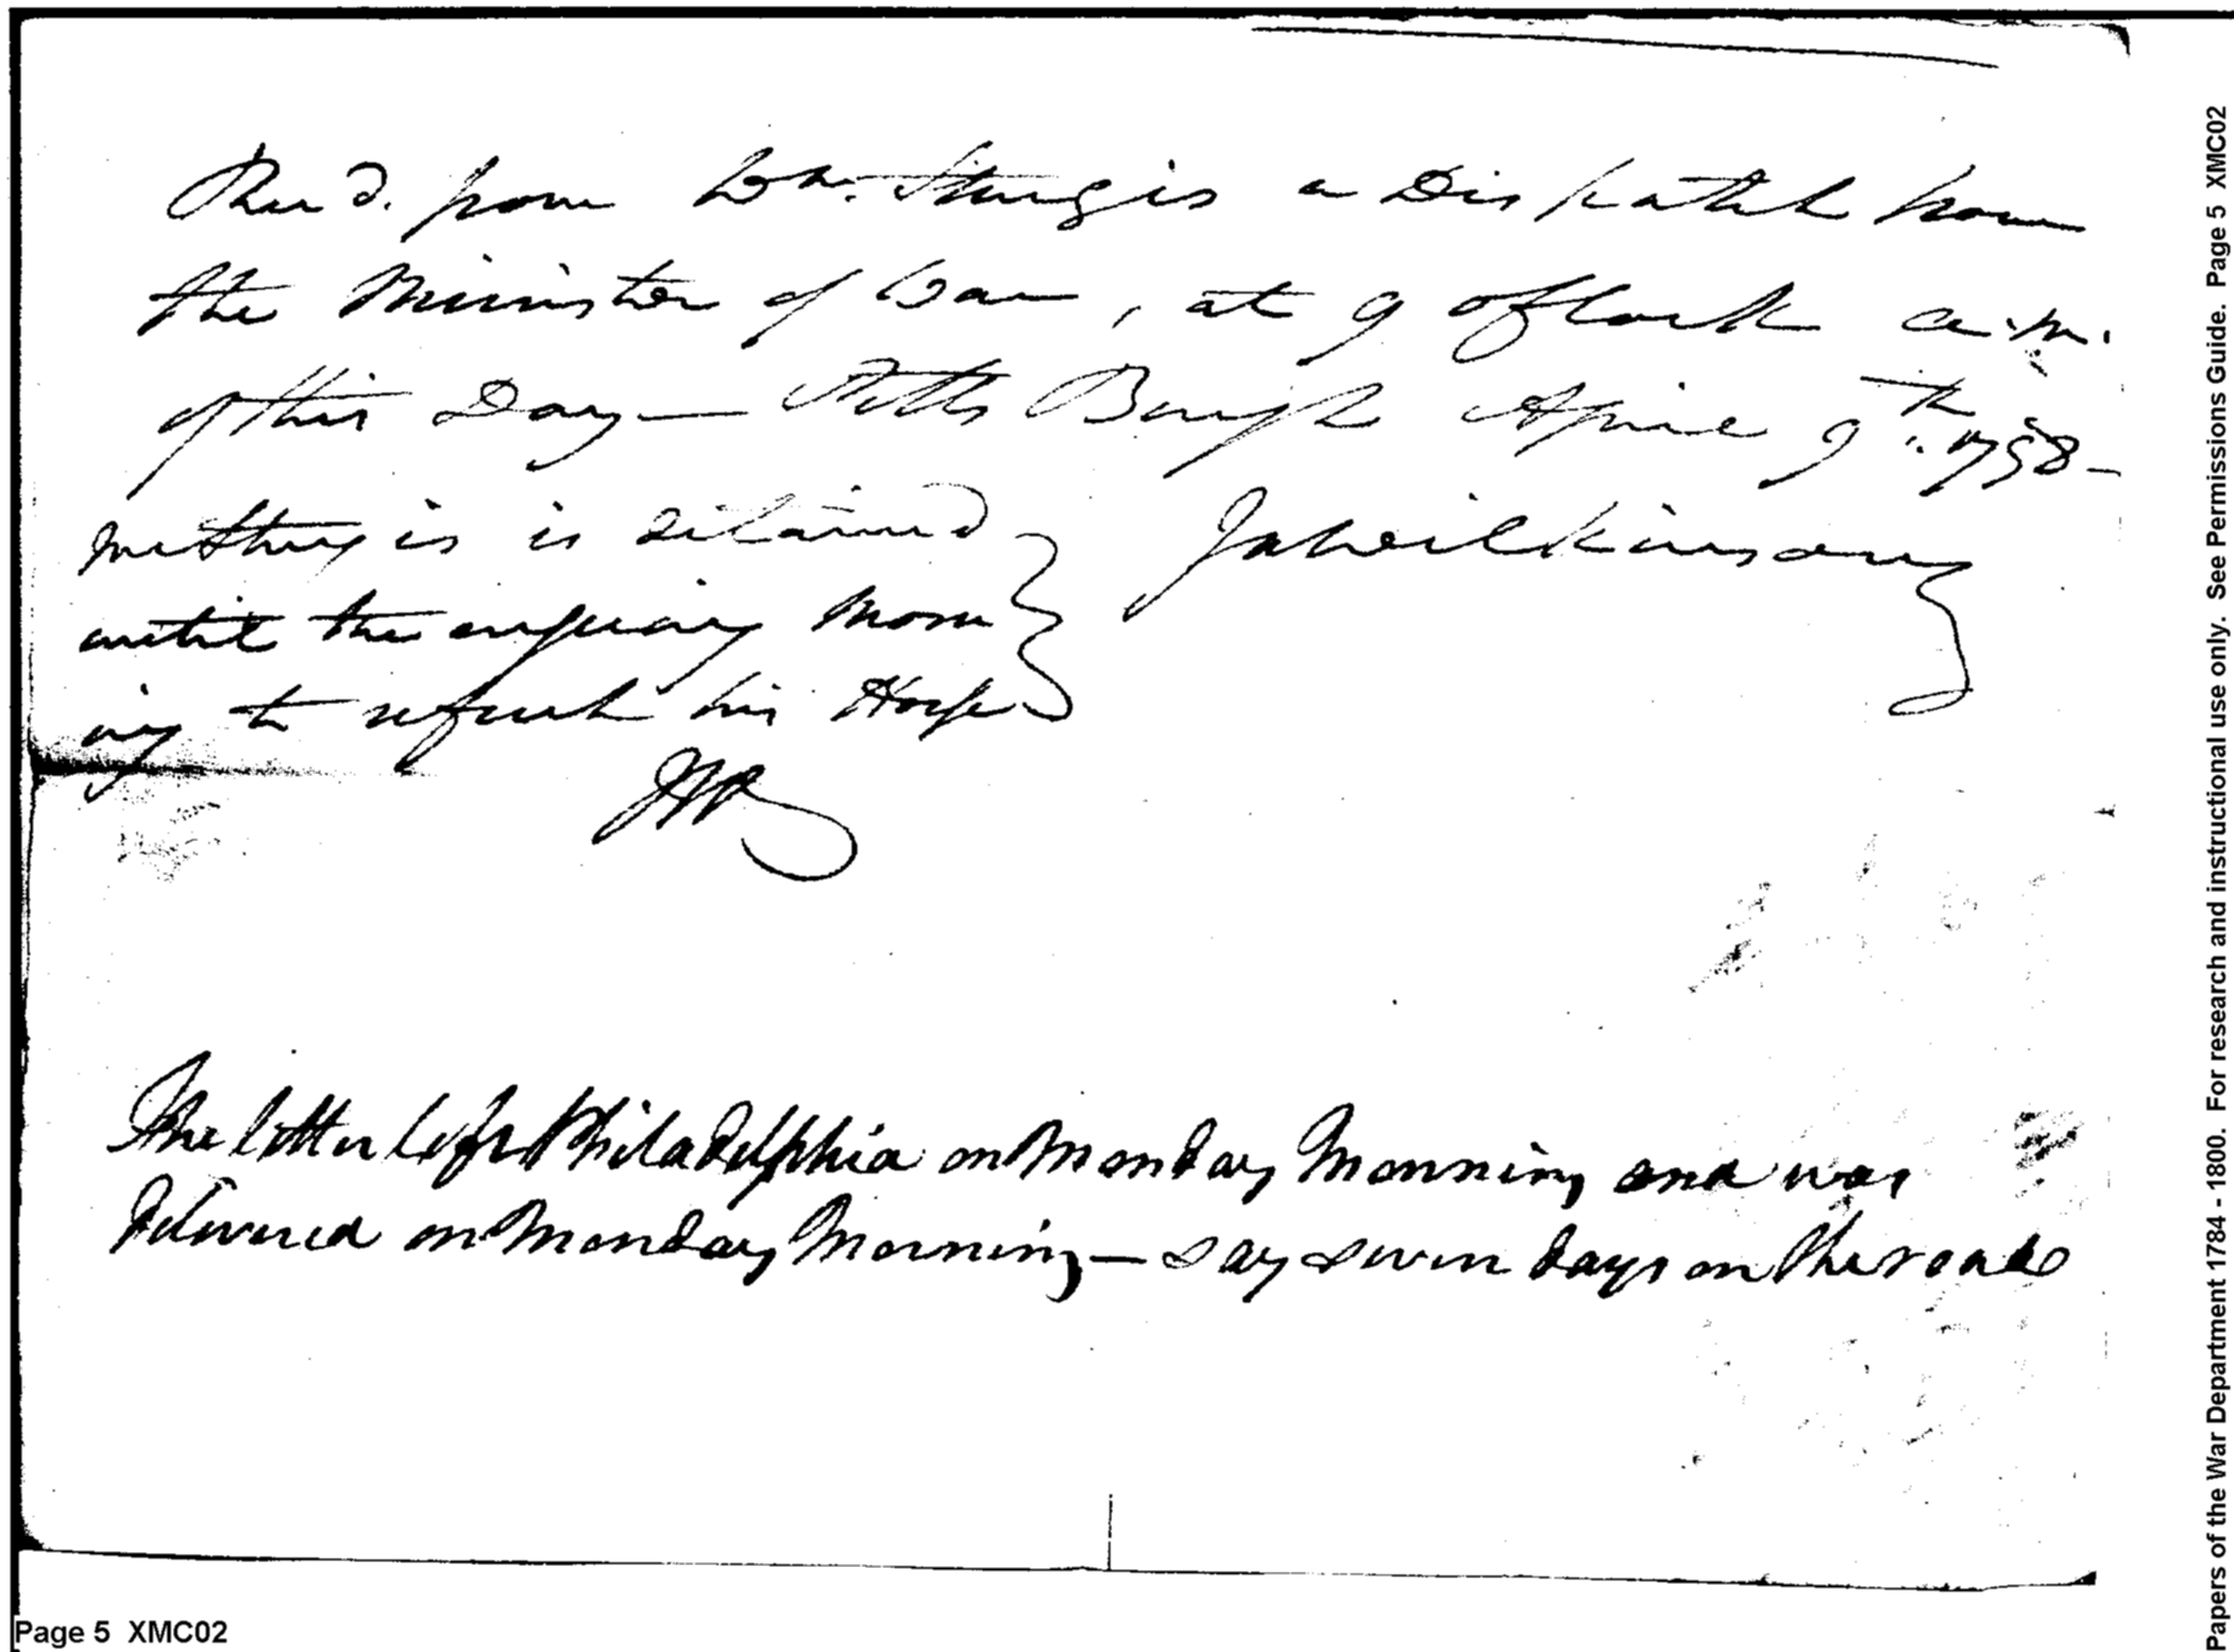 Rec'd. from Wm. Sturgis a Dispatch from
the Minister of War, at 9 oClock a.m.
of this Day — Pitts Burgh April 9th. 1798 -
Mr Sturgis is detained
until the ensuing Morn
ing to refresh his Horse
Ja Wilkinson
JW
The letter left Philadelphia on Monday Morning and was
delivered on Monday Morning — say seven days on the road
Page 5 XMC02
Papers of the War Department 1784 - 1800. For research and instructional use only. See Permissions Guide. Page 5 XMC02